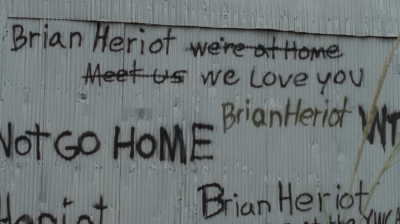 Brian Heriot we're at Home
Meet us we Love you
Brian Heriot
Not GO HOME
Brian Heriot